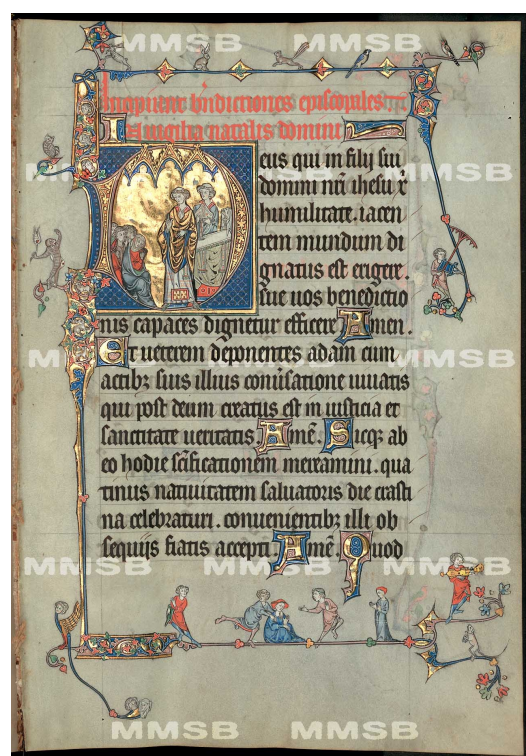 Incipiunt bndictiones episcopales
In vigilia natalis domini
Deus qui in filij sui
domini nri ihesu x
humilitate. iacen
tem mundum di
gnatus est erigere.
sue uos benedictio
nis capaces dignetur efficere Amen.
Et ueterem deponentes adam cum
actibz suis illius conuersatione uiuatis
qui post deum creatus est in iusticia et
sanctitate ueritatis Amē. Sicqz ab
eo hodie scificationem mereamini. qua
tinus natiuitatem saluatoris die crasti
na celebraturi. conuenientibz illi ob
sequijs fiatis accepti. Amē. Quod
MMSB MMSB
MMSB MMSB
MMSB MMSB
MMSB MMSB
MMSB MMSB